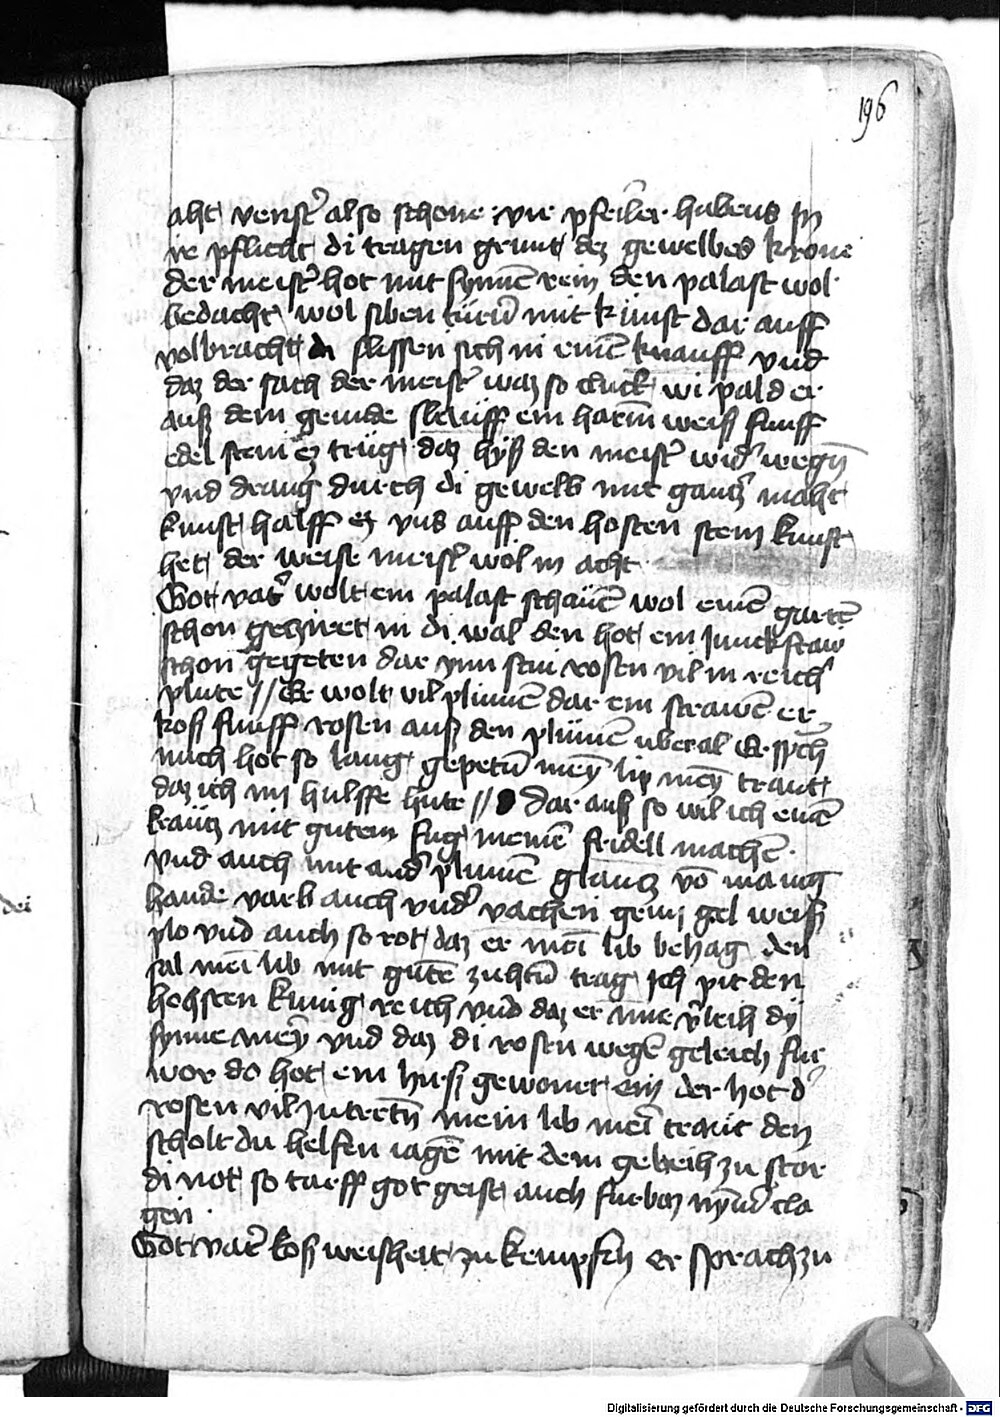 196
aht venst᷑ also schone vir pfeiler habens in
ir pflicht di tragen grunt dez gewelbes krone
der meist᷑ hot mit synnē rein den palast wol
bedacht wol siben türñ mit künst dar auff
volbracht di slissen sich in einē knauff vnd
daz der sach der meist᷑ waz so cluck wi pald er
auß dem grunde slewff ein harm weiß funff
edel stein ez trüg daz hyß den meist᷑ wid᷑ wegñ
vnd drang durch di gewelb mit gantz᷑ maht
kunst halff ez vns auff den hosten stein kunst
het der weise meist᷑ wol in acht
Got vat᷑ wolt ein palast schawē wol einē gartē
schon geziret in di wal den hot ein junckfraw
schon gegeten dar ynn stin rosen vil in reich᷑
plute // Er wolt vil plumē dar ein strawē er
kos funff rosen auß den plumē uberal Er sp̄ch
mich hot so lang gepetñ mey̅ lip mey̅ traut
daz ich mj hulffe hute // dar auß so wil ich einē
krantz mit gutem fug meinē fridell machē
vnd auch mit and᷑ plumē glantz vō manig
hande varb auch vnd᷑ vachen grun gel weiß
plo vnd auch so rot daz er meī lib behag den
sal meī lib mit gutē zuhtñ trag Ich pit den
hochsten kunig reich vnd daz er mir v᷑leih dy
synne mey̅ vnd daz di rosen wegē geleich fur
wor do hot ein hirß gewonet ein der hot d᷑
rosen vil zutretñ mein lib meī traut den
scholt du helfen iagē mit dem geleih zu stor
di not so tarff got geist auch furbaz nymā᷑ cla
gen
Got vat᷑ kos weisheit zu kempfen er sprach zu
Digitalisierung gefördert durch die Deutsche Forschungsgemeinschaft - DFG